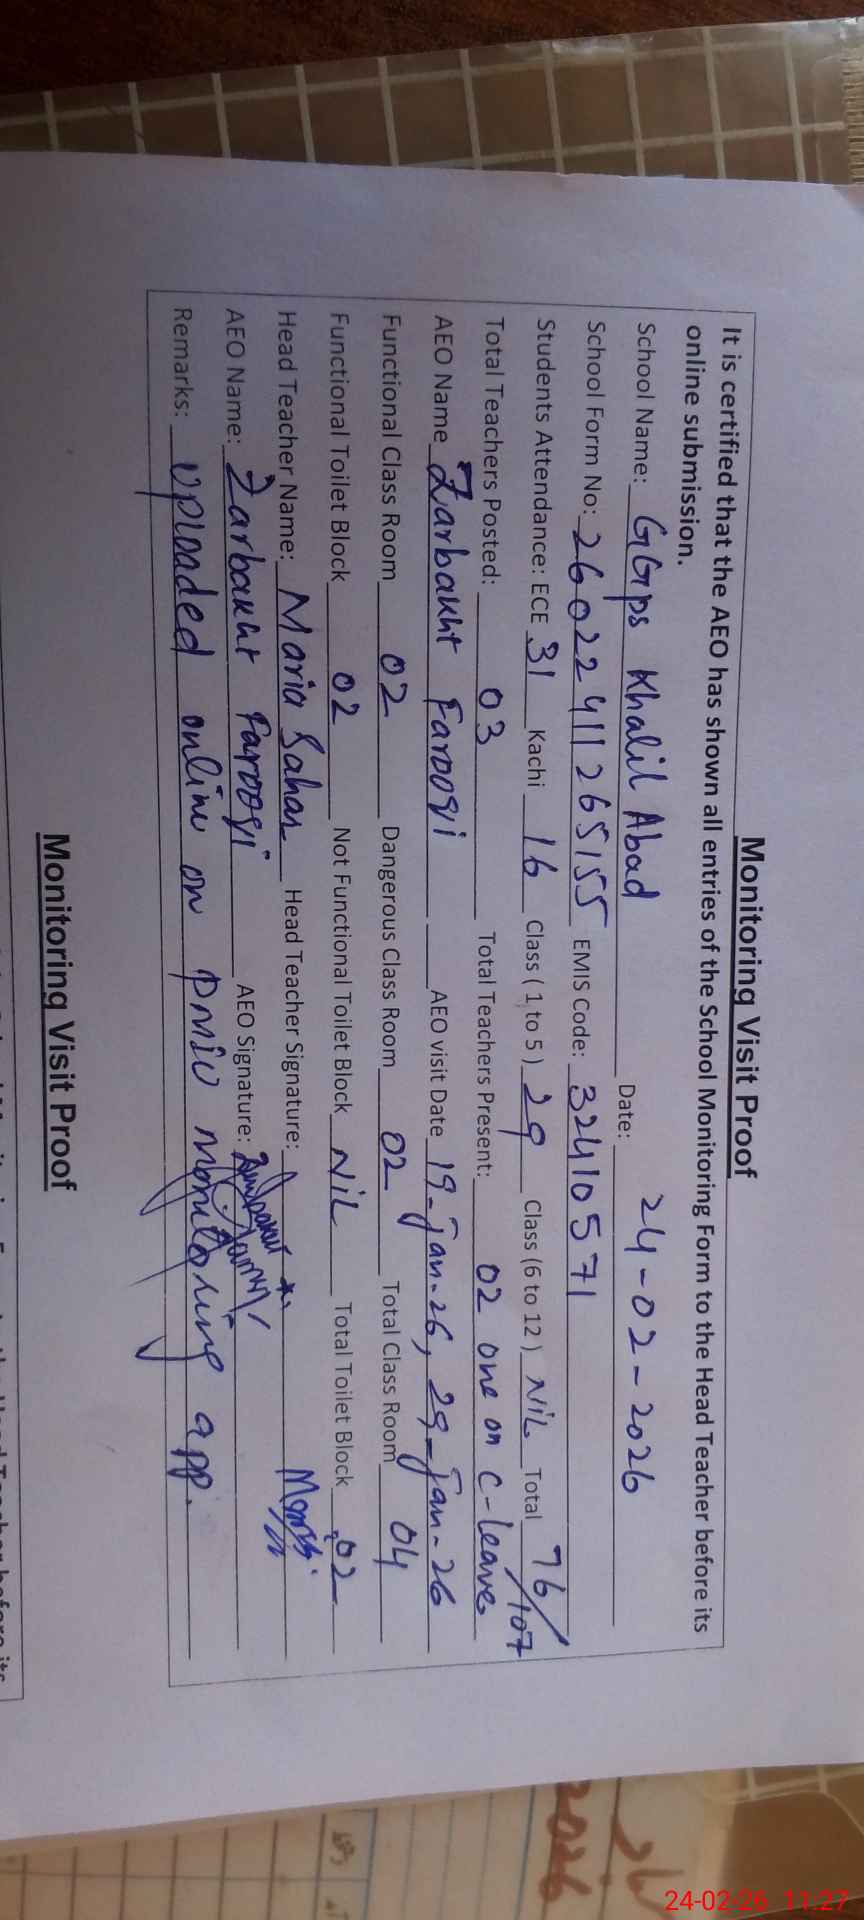 Monitoring Visit Proof
It is certified that the AEO has shown all entries of the School Monitoring Form to the Head Teacher before its
online submission.
School Name: GGps Khalil Abad Date: 24-02-2026
School Form No: 26022411265155 EMIS Code: 32410571
Students Attendance: ECE 31 Kachi 16 Class ( 1 to 5 ) 29 Class (6 to 12 ) NiL Total 76/107
Total Teachers Posted: 03 Total Teachers Present: 02 one on C-leave
AEO Name Zarbakht Farooqi AEO visit Date 19-jan-26, 29-jan-26
Functional Class Room 02 Dangerous Class Room 02 Total Class Room 04
Functional Toilet Block 02 Not Functional Toilet Block NiL Total Toilet Block 02
Head Teacher Name: Maria Sahar Head Teacher Signature:
AEO Name: Zarbakht Farooqi AEO Signature:
Remarks: uploaded online on pmiu monitoring app.
Monitoring Visit Proof
2026
24-02-26 11:27